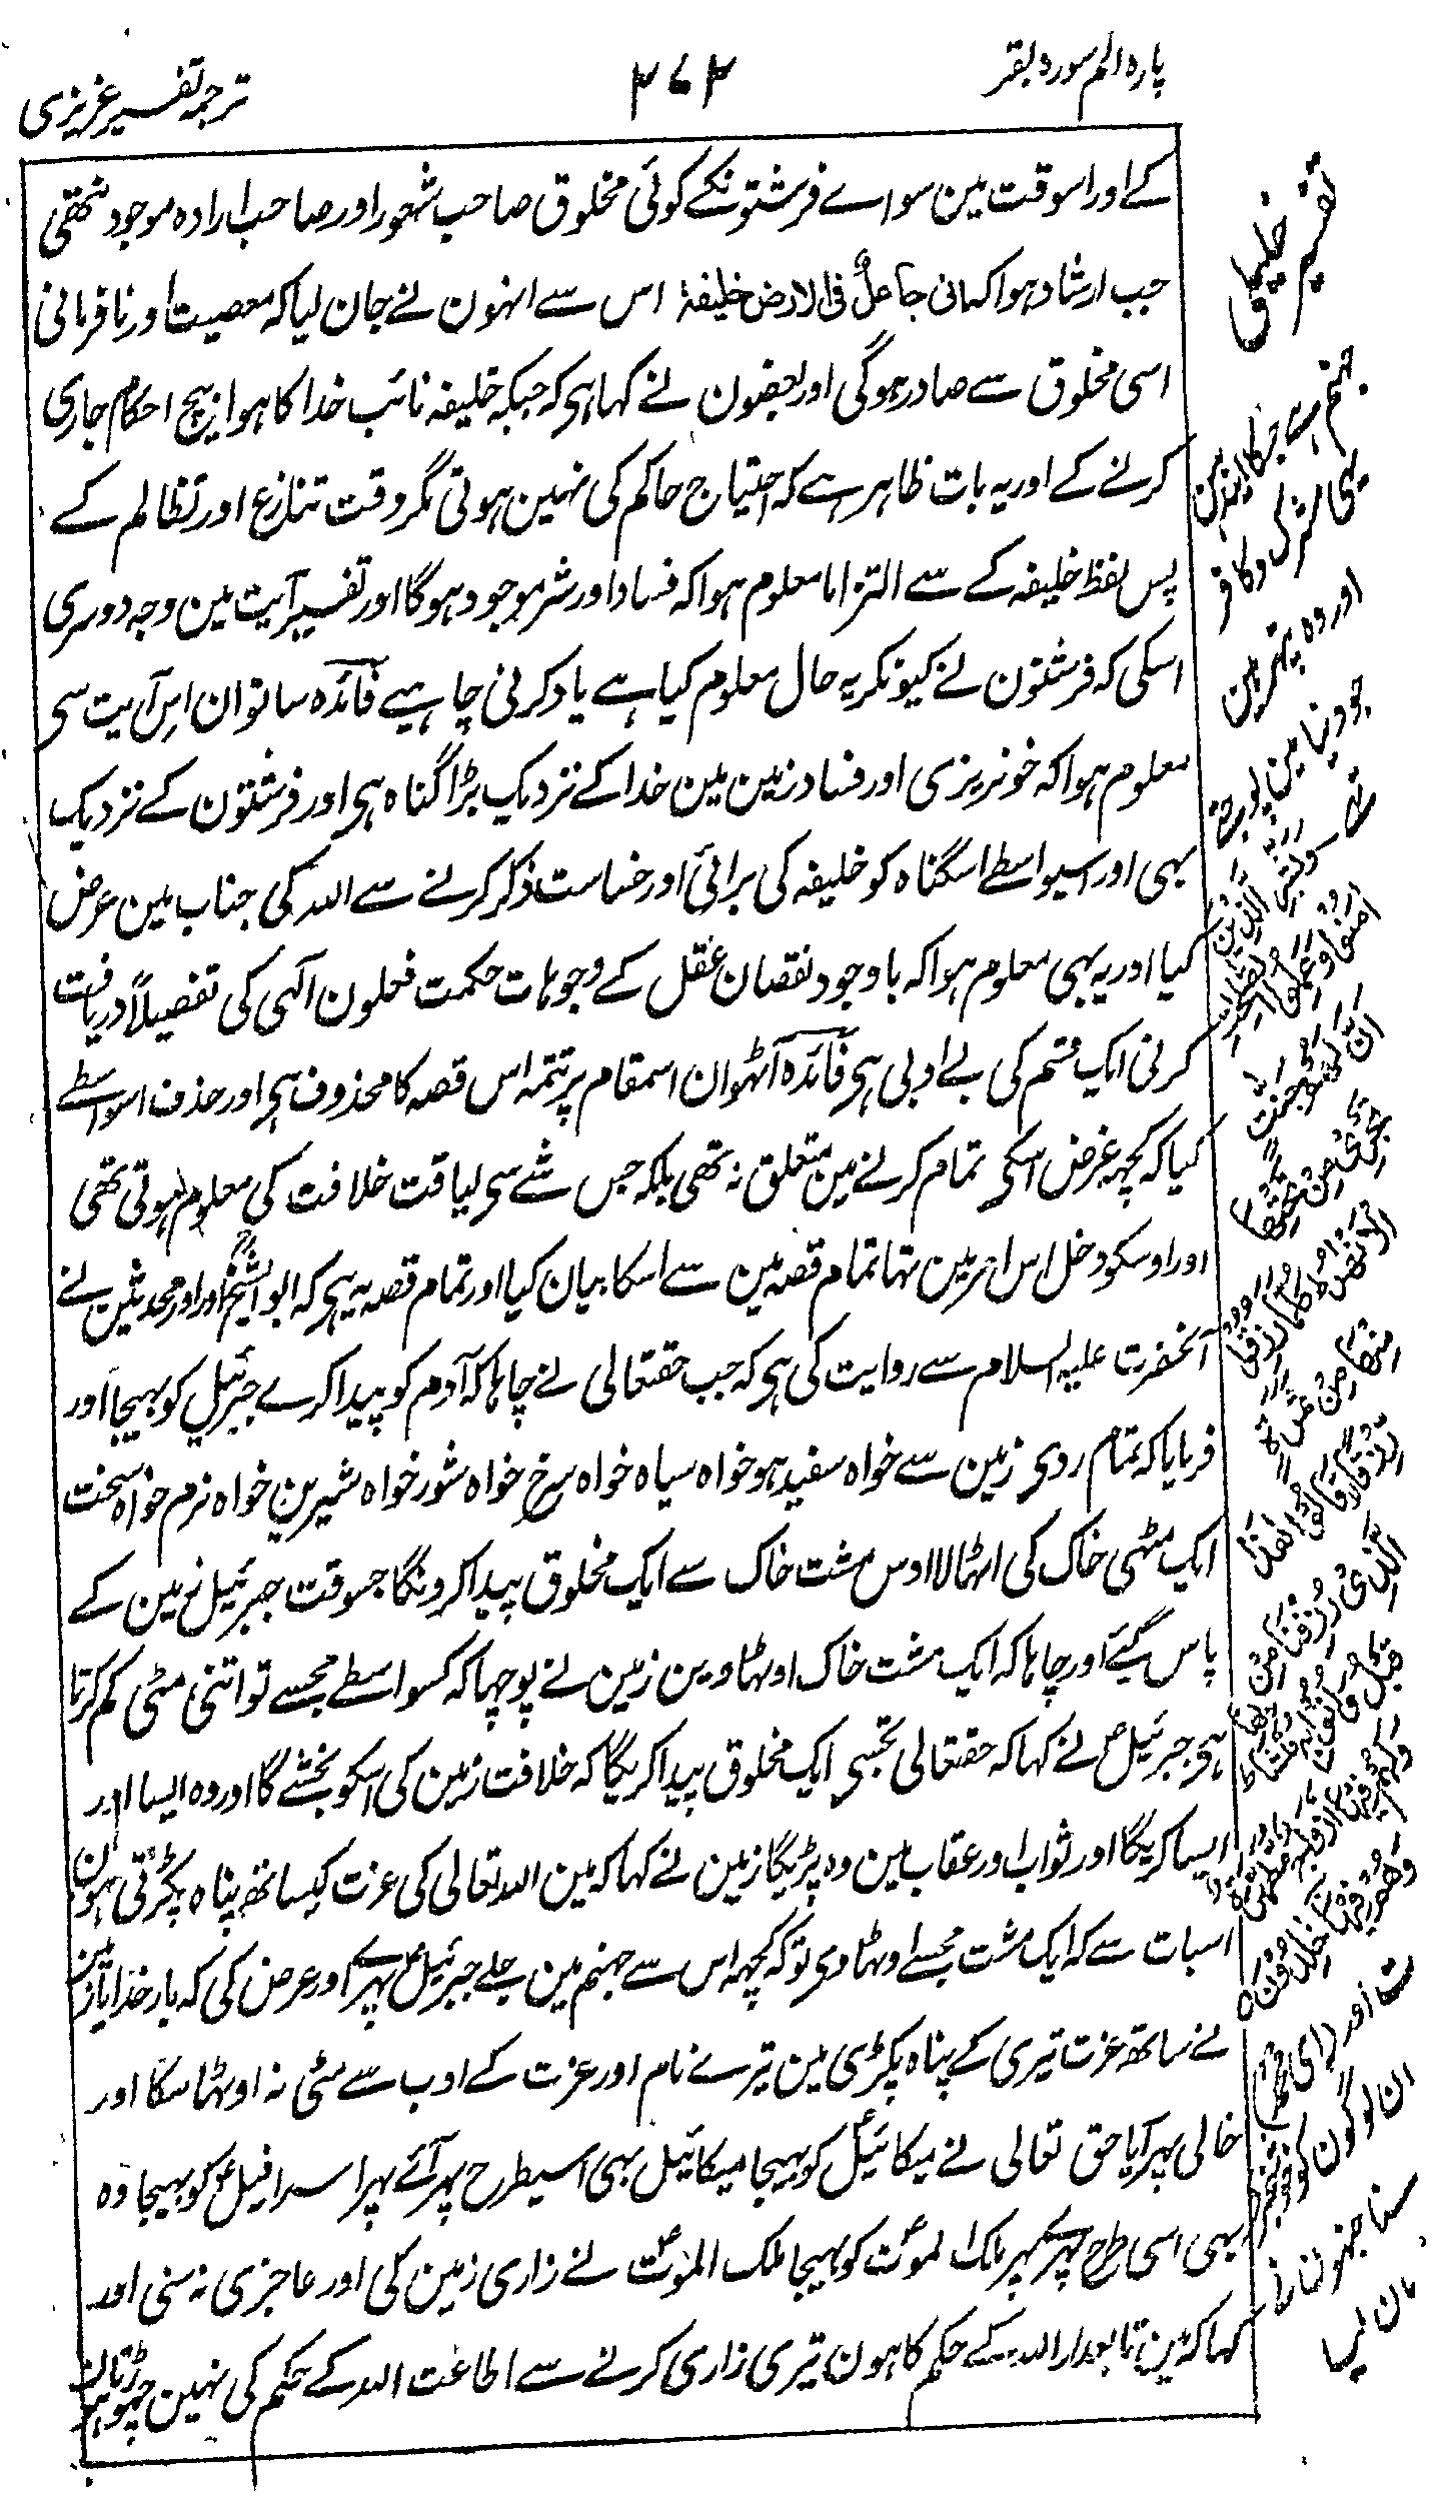 پارہ الم سورہ بقر
۲۷۲
ترجمہ تفسیر عزیزی
کے اور اسوقت مین سواے فرشتونکے کوئی مخلوق صاحب شعور اور صاحب ارادہ موجود نتھی
جب ارشاد ہوا کہ انی جاعلٌ فی الارض خلیفۃ اس سے انہون نے جان لیا کہ معصیت اور نافرمانی
اسی مخلوق سے صادر ہوگی اور بعضون نے کہا ہی کہ جبکہ خلیفہ نائب خدا کا ہوا بیچ احکام جاری
کرنے کے اور یہ بات ظاہر ہے کہ احتیاج حاکم کی نہین ہوتی مگر وقت تنازع اور تظالم کے
پس لفظ خلیفہ کے سے التزاما معلوم ہوا کہ فساد اور شر موجود ہوگا اور تفسیر آیت مین وجہ دوسری
اسکی کہ فرشتون نے کیونکر یہ حال معلوم کیا ہے یاد کرنی چاہیے فائدہ ساتوان اس آیت سی
معلوم ہوا کہ خونریزی اور فساد زمین مین خدا کے نزدیک بڑا گناہ ہی اور فرشتون کے نزدیک
بہی اور اسیواسطے اسگناہ کو خلیفہ کی برائی اور خساست ذکر کرنے سے اللہ کی جناب مین عرض
کیا اور یہ بہی معلوم ہوا کہ باوجود نقصان عقل کے وجوہات حکمت فعلون الٰہی کی تفصیلاً دریافت
کرنی ایک قسم کی بے ادبی ہی فائدہ آٹھوان اسمقام پر تتمہ اس قصہ کا محذوف ہی اور حذف اسواسطے
کیا کہ کچہ غرض اسکی تمام کرنے مین متعلق نہ تھی بلکہ جس شے سی لیاقت خلافت کی معلوم ہوتی تھی
اور اوسکو دخل اس امر مین تہا تمام قصہ مین سے اسکا بیان کیا اور تمام قصہ یہ ہی کہ ابو الشیخ اور اور محدثین نے
آنحضرت علیہ السلام سے روایت کی ہی کہ جب حقتعالی نے چاہا کہ آدم کو پیدا کرے جبرئیل کو بہیجا اور
فرمایا کہ تمام روی زمین سے خواہ سفید ہو خواہ سیاہ خواہ سرخ خواہ شور خواہ شیرین خواہ نرم خواہ سخت
ایک مٹہی خاک کی اٹہا لا اوس مشت خاک سے ایک مخلوق پیدا کرونگا جسوقت جبرئیل زمین کے
پاس گئے اور چاہا کہ ایک مشت خاک اوٹہاوین زمین نے پوچہا کہ کسواسطے مجسے تو اتنی مٹی کم کرتا
ہی جبرئیل نے کہا کہ حقتعالی تجسی ایک مخلوق پیدا کریگا کہ خلافت زمین کی اسکو بخشے گا اور وہ ایسا اور
ایسا کریگا اور ثواب اور عقاب مین وہ پڑیگا زمین نے کہا کہ مین اللہ تعالی کی عزت کیساتھ پناہ پکڑتی ہون
اسبات سے کہ ایک مشت مجسے اوٹہا وی تو کہ کچہہ اس سے جہنم مین جلے جبرئیل پہرے اور عرض کی کہ بار خدایا زمین
نے ساتھ عزت تیری کے پناہ پکڑی مین تیرے نام اور عزت کے ادب سے مٹی نہ اوٹہا سکا اور
خالی پہر آیا حق تعالی نے میکائیل کو بہیجا میکائیل بہی اسیطرح پہر آئے پہر اسرافیل کو بہیجا وہ
بہی اسی طرح پہرے پہر ملک الموت کو بہیجا ملک الموت نے زاری زمین کی اور عاجزی نہ سنی اور
کہا کہ مین تابعدار اللہ کے حکم کا ہون تیری زاری کرنے سے اطاعت اللہ کے حکم کی نہین چہوڑتا ہون
اور وہ پتھر ہین
جو دنیا مین
وَبَشِّرِ الَّذِينَ
اٰمَنُوا وَعَمِلُوا الصّٰلِحٰتِ
اَنَّ لَهُمْ جَنّٰتٍ
تَجْرِي مِنْ تَحْتِهَا
الْاَنْهٰرُ كُلَّمَا رُزِقُوا
مِنْهَا مِنْ ثَمَرَةٍ
رِّزْقًا قَالُوا هٰذَا
الَّذِي رُزِقْنَا مِنْ
قَبْلُ وَاُتُوا بِهٖ مُتَشَابِهًا
وَلَهُمْ فِيهَا اَزْوَاجٌ مُّطَهَّرَةٌ
وَّهُمْ فِيهَا خٰلِدُونَ ه
ت اور
ان لوگون کو